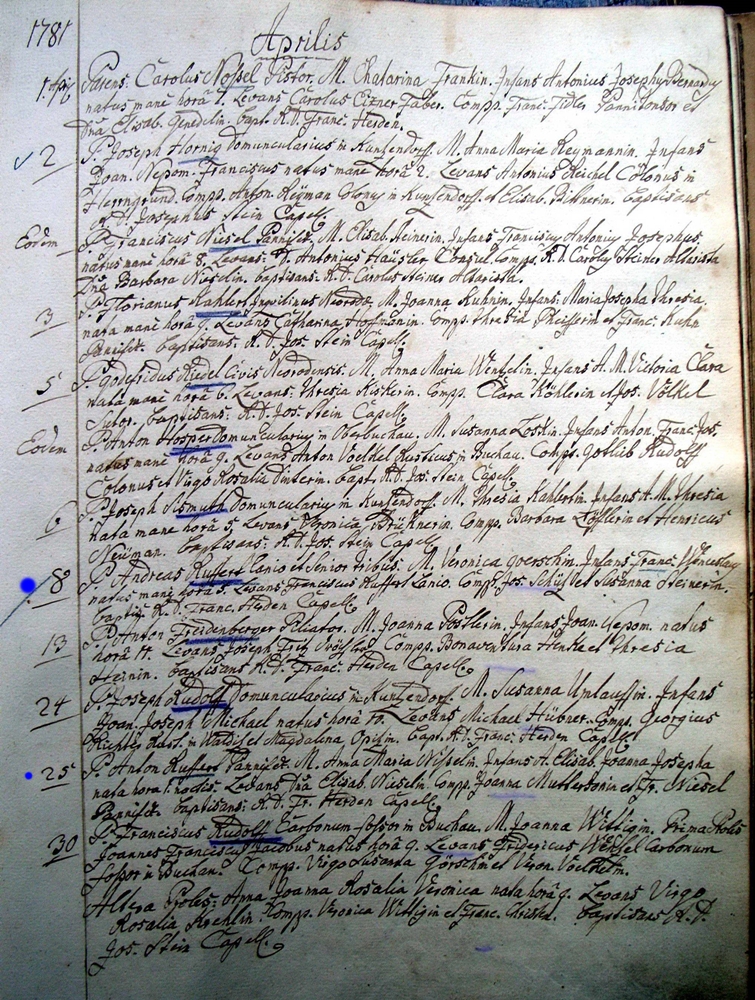 1781
Aprilis
1. Parens. Carolus Nossel Pistor. M. Chatarina Frankin. Infans Antonius Josephus Bernardus
natus mane horâ 7. Levans Carolus Eizner faber. Comp. Franc. Fidler Pannitonsor et
Dna Elisab. Genedelin. bapt. R.D. Franc. Herden.
2 P. Joseph Hornig Domuncularius in Kunzendorff. M. Anna Maria Reymannin. Infans
Joan. Nepom. Franciscus natus mane horâ 2. Levans Antonius Reichel Colonus in
Herrngrund. Comp. Anton. Reyman Colonus in Kunzendorff. et Elisab. Bittnerin. baptisans
R. D. Josephus Stein Capell.
Eodem P. Franciscus Niesel Pannifex. M. Elisab. Steinerin. Infans Franciscus Antonius Josephus
natus mane horâ 8. Levans D. Antonius Consul. Comp. R.D. Carolus Steiner Altarista
Dna Barbara Nieselin. baptisans. R.D. Carolus Steiner Altarista.
3 P. Florianus Kahlert Inquilinus Neorode. M. Joanna Kuhnin. Infans Maria Josepha Thresia
nata mane horâ 9. Levans Catharina Hoffmanin. Comp. Thresia Pheifferin et Franc. Kuhn
Pannifex. baptisans. R. D. Jos. Stein Capell.
5 P. Godefridus Riedel Civis Neorodensis. M. Anna Maria Wentzelin. Infans A. M. Victoria Clara
nata mane horâ 6. Levans. Thresia Kiskerin. Comp. Clara Köhlerin et Jos. Völkel
Sutor. baptisans. R.D. Jos. Stein Capell.
Eodem P. Anton Hosper Domuncularius in Oberbuchau. M. Susanna Loskin. Infans Anton. Franc. Jos.
natus mane horâ 9. Levans Anton Voelkel Rusticus in Buchau. Comp. Gotlib Rudolff
Colonus et Virgo Rosalia Dinterin. bapt. R.D. Jos. Stein Capell.
6 P. Joseph Domuncularius in Kunzendorf. M. Thresia Kahlertin. Infans A. M. Thresia
nata mane horâ 5 Levans Veronica Brücknerin. Comp. Barbara Löfflerin et Henricus
Neuman. baptisans. R.D. Jos. Stein Capell.
8 P. Andreas Ruffert Lanio et Senior tribus. M. Veronica Goerschin. Infans Franc. Wenceslaus
natus mane horâ 5. Levans Franciscus Ruffert Lanio. Comp. Jos. et Susanna Steinerin.
baptis. R.D. Franc. Herden Capell.
13 P. Anton Freidenberger Pileator. M. Joanna Pöstlerin. Infans Joan. Nepom. natus
horâ 11. Levans Joseph Fritz Comp. Bonaventura Henke et Thresia
baptisans R.D. Franc. Herden Capell.
24 P. Joseph Rudolf Domuncularius in Kunzendorf. M. Susanna Umlauffin. Infans
Joan. Joseph Michael natus horâ 10. Levans Michael Hübner. Comp. Georgius
Richter Rust. in et Magdalena Opitzin. bapt. R.D. Franc. Herden Capell.
25 P. Anton Ruffert Pannifex. M. Anna Maria Niselin. Infans A. Elisab. Joanna Josepha
nata hora 1. noctis. Levans Dna Elisab. Nieseln. Comp. Joanna et Fr. Niesel
Pannifex. baptisans. R.D. Fr. Herden Capell.
30 P. Franciscus Rudolff Carbonum fossor in Buchau. M. Joanna Wittigin. Prima Proles
Joannes Franciscus Jacobus natus horâ 9. Levans Fridericus Wetzel Carbonum
fossor in Buchau. Comp. Virgo Susanna Görschin et Veron. Voelkelin.
Altera Proles. Anna Joanna Rosalia Veronica nata horâ 9. Levans Virgo
Rosalia Comp. Veronica Wittigin et Franc. Christen. baptisans R.D.
Jos. Stein Capell.